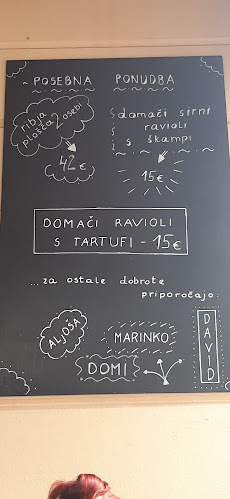 POSEBNA PONUDBA
ribja
plošča 2 osebi
42 €
domači sirni
ravioli
s škampi
15 €
DOMAČI RAVIOLI
S TARTUFI - 15 €
...za ostale dobrote
priporočajo:
ALJOŠA
MARINKO
DOMI
DAVID